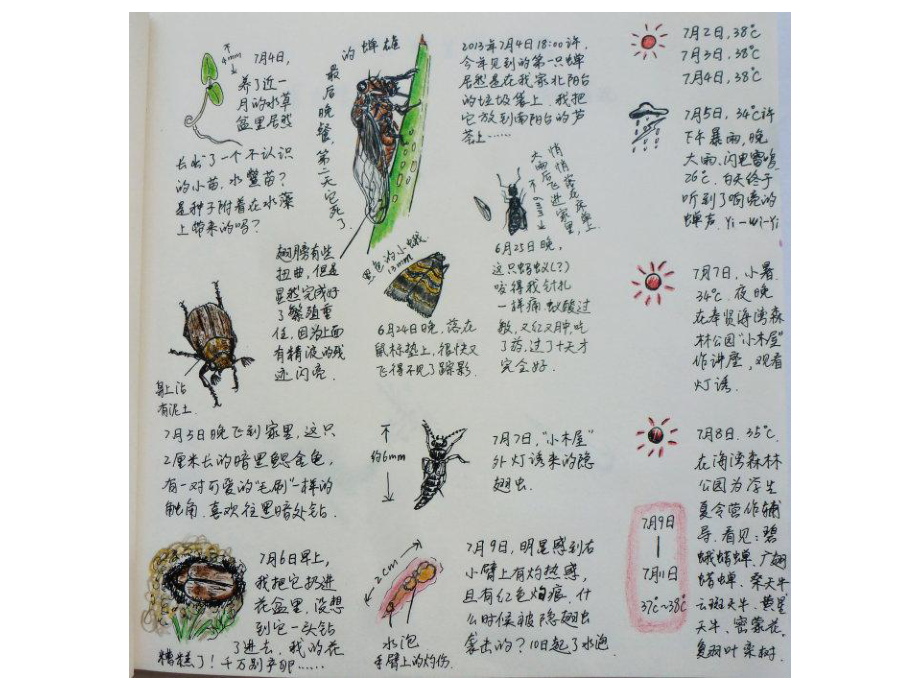 4mm
7月4日,
养了近一
月的水草
盆里居然
长出了一个不认识
的小苗,水鳖苗?
是种子附着在水藻
上带来的吗?
雄蝉的
最后晚餐,第二天它死了.
翅膀有些
扭曲,但是
显然完成好
了繁殖重
任,因为上面
有精液的残
迹闪亮.
2013年7月4日18:00许,
今年见到的第一只蝉
居然是在我家北阳台
的垃圾袋上.我把
它放到南阳台的芦
荟上……
大雨后飞进家里,
悄悄落在床单上
不6mm
6月25日晚,
这只蚂蚁(?)
咬得我针扎
一样痛.蚁酸过
敏,又红又肿,吃
了药,过了十天才
完全好.
黑色的小蛾
13mm
6月24日晚,落在
鼠标垫上,很快又
飞得不见了踪影.
身上沾
有泥土.
7月5日晚飞到家里,这只
2厘米长的暗黑鳃金龟,
有一对可爱的"毛刷"一样的
触角.喜欢往黑暗处钻.
7月6日早上,
我把它扔进
花盆里,没想
到它一头钻
了进去.我的花
糟糕了!千万别产卵……
不
约6mm
7月7日,"小木屋"
外灯诱来的隐
翅虫.
2cm
水泡
手臂上的灼伤.
7月9日,明显感到右
小臂上有灼热感,
且有红色灼痕.什
么时候被隐翅虫
袭击的?10日起了水泡.
7月2日,38℃
7月3日,38℃
7月4日,38℃
7月5日,34℃许
下午暴雨,晚
大雨、闪电雷鸣
26℃.白天终于
听到了响亮的
蝉声.Yi-Wi-Yi
7月7日,小暑.
34℃.夜晚
在奉贤海湾森
林公园"小木屋"
作讲座,观看
灯诱.
7月8日.35℃.
在海湾森林
公园为学生
夏令营作辅
导.看见:碧
蛾蜡蝉、广翅
蜡蝉、桑天牛
云斑天牛、黄星
天牛、密蒙花、
复羽叶栾树.
7月9日
|
7月11日
37℃~38℃